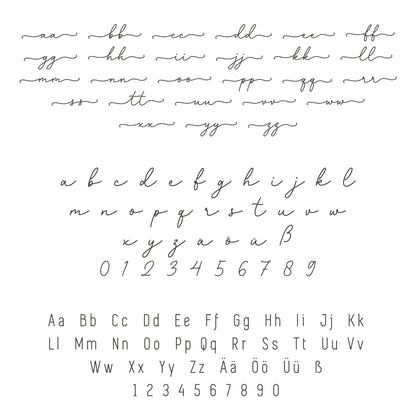 aa bb cc dd ee ff
gg hh ii jj kk ll
mm nn oo pp qq rr
ss tt uu vv ww
xx yy zz
a b c d e f g h i j k l
m n o p q r s t u v w
x y z ä ö ü ß
0 1 2 3 4 5 6 7 8 9
Aa Bb Cc Dd Ee Ff Gg Hh Ii Jj Kk
Ll Mm Nn Oo Pp Qq Rr Ss Tt Uu Vv
Ww Xx Yy Zz Ää Öö Üü ß
1 2 3 4 5 6 7 8 9 0